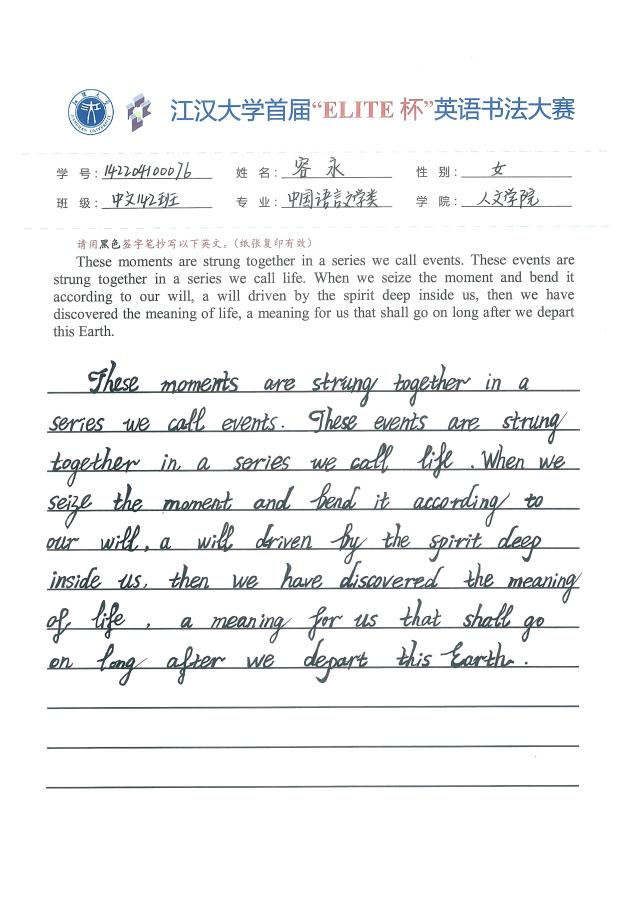 江汉大学首届“ELITE 杯”英语书法大赛
学 号: 142204100076 姓 名: 容永 性 别: 女
班 级: 中文142班 专 业: 中国语言文学类 学 院: 人文学院
请用黑色签字笔抄写以下英文。(纸张复印有效)
These moments are strung together in a series we call events. These events are
strung together in a series we call life. When we seize the moment and bend it
according to our will, a will driven by the spirit deep inside us, then we have
discovered the meaning of life, a meaning for us that shall go on long after we depart
this Earth.
These moments are strung together in a
series we call events. These events are strung
together in a series we call life. When we
seize the moment and bend it according to
our will, a will driven by the spirit deep
inside us, then we have discovered the meaning
of life, a meaning for us that shall go
on long after we depart this Earth.